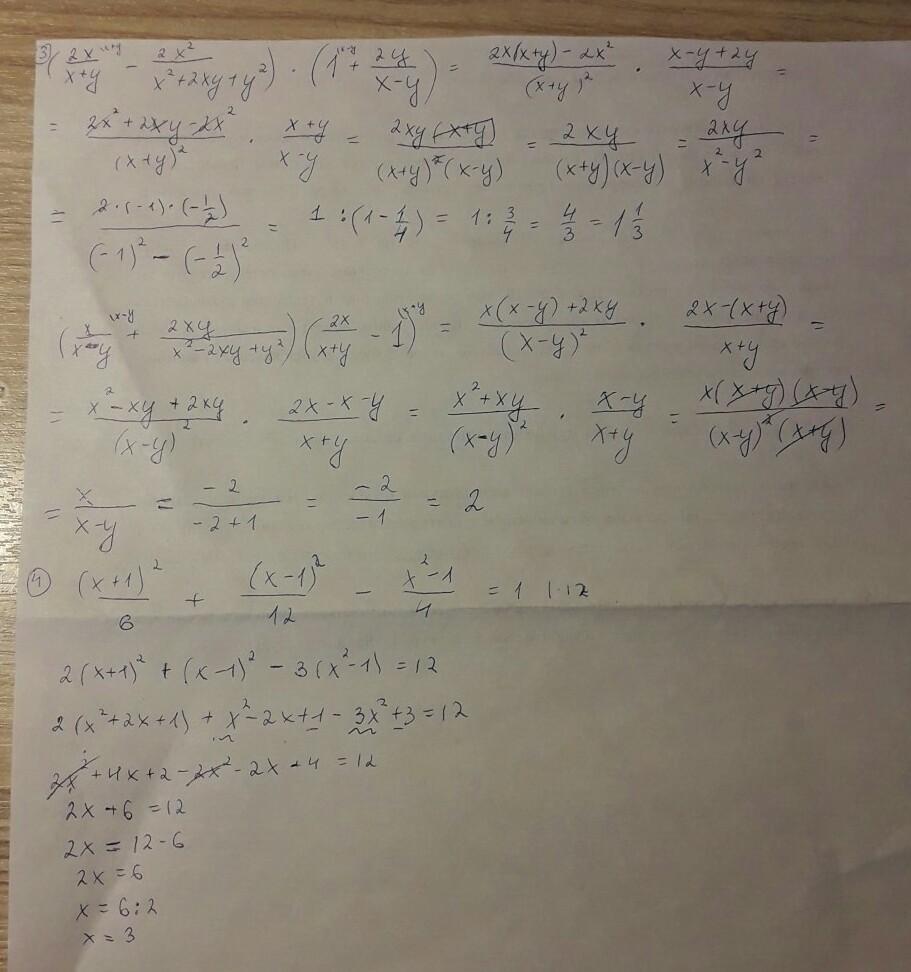 3) (2x/(x+y) ^(x+y) - 2x²/(x²+2xy+y²)) · (1 ^(x-y) + 2y/(x-y)) = (2x(x+y) - 2x²)/(x+y)² · (x-y+2y)/(x-y) =
= (2x²+2xy-2x²)/(x+y)² · (x+y)/(x-y) = 2xy(x+y)/((x+y)²(x-y)) = 2xy/((x+y)(x-y)) = 2xy/(x²-y²) =
= (2·(-1)·(-1/2))/((-1)² - (-1/2)²) = 1 : (1 - 1/4) = 1 : 3/4 = 4/3 = 1 1/3
(x/(x-y) ^(x-y) + 2xy/(x²-2xy+y²)) (2x/(x+y) - 1) ^(x+y) = (x(x-y)+2xy)/(x-y)² · (2x-(x+y))/(x+y) =
= (x²-xy+2xy)/(x-y)² · (2x-x-y)/(x+y) = (x²+xy)/(x-y)² · (x-y)/(x+y) = x(x+y)(x-y)/((x-y)²(x+y)) =
= x/(x-y) = -2/(-2+1) = -2/-1 = 2
4) (x+1)²/6 + (x-1)²/12 - (x²-1)/4 = 1 |·12
2(x+1)² + (x-1)² - 3(x²-1) = 12
2(x²+2x+1) + x²-2x+1-3x²+3=12
2x²+4x+2-2x²-2x+4 = 12
2x+6 = 12
2x = 12-6
2x = 6
x = 6:2
x = 3